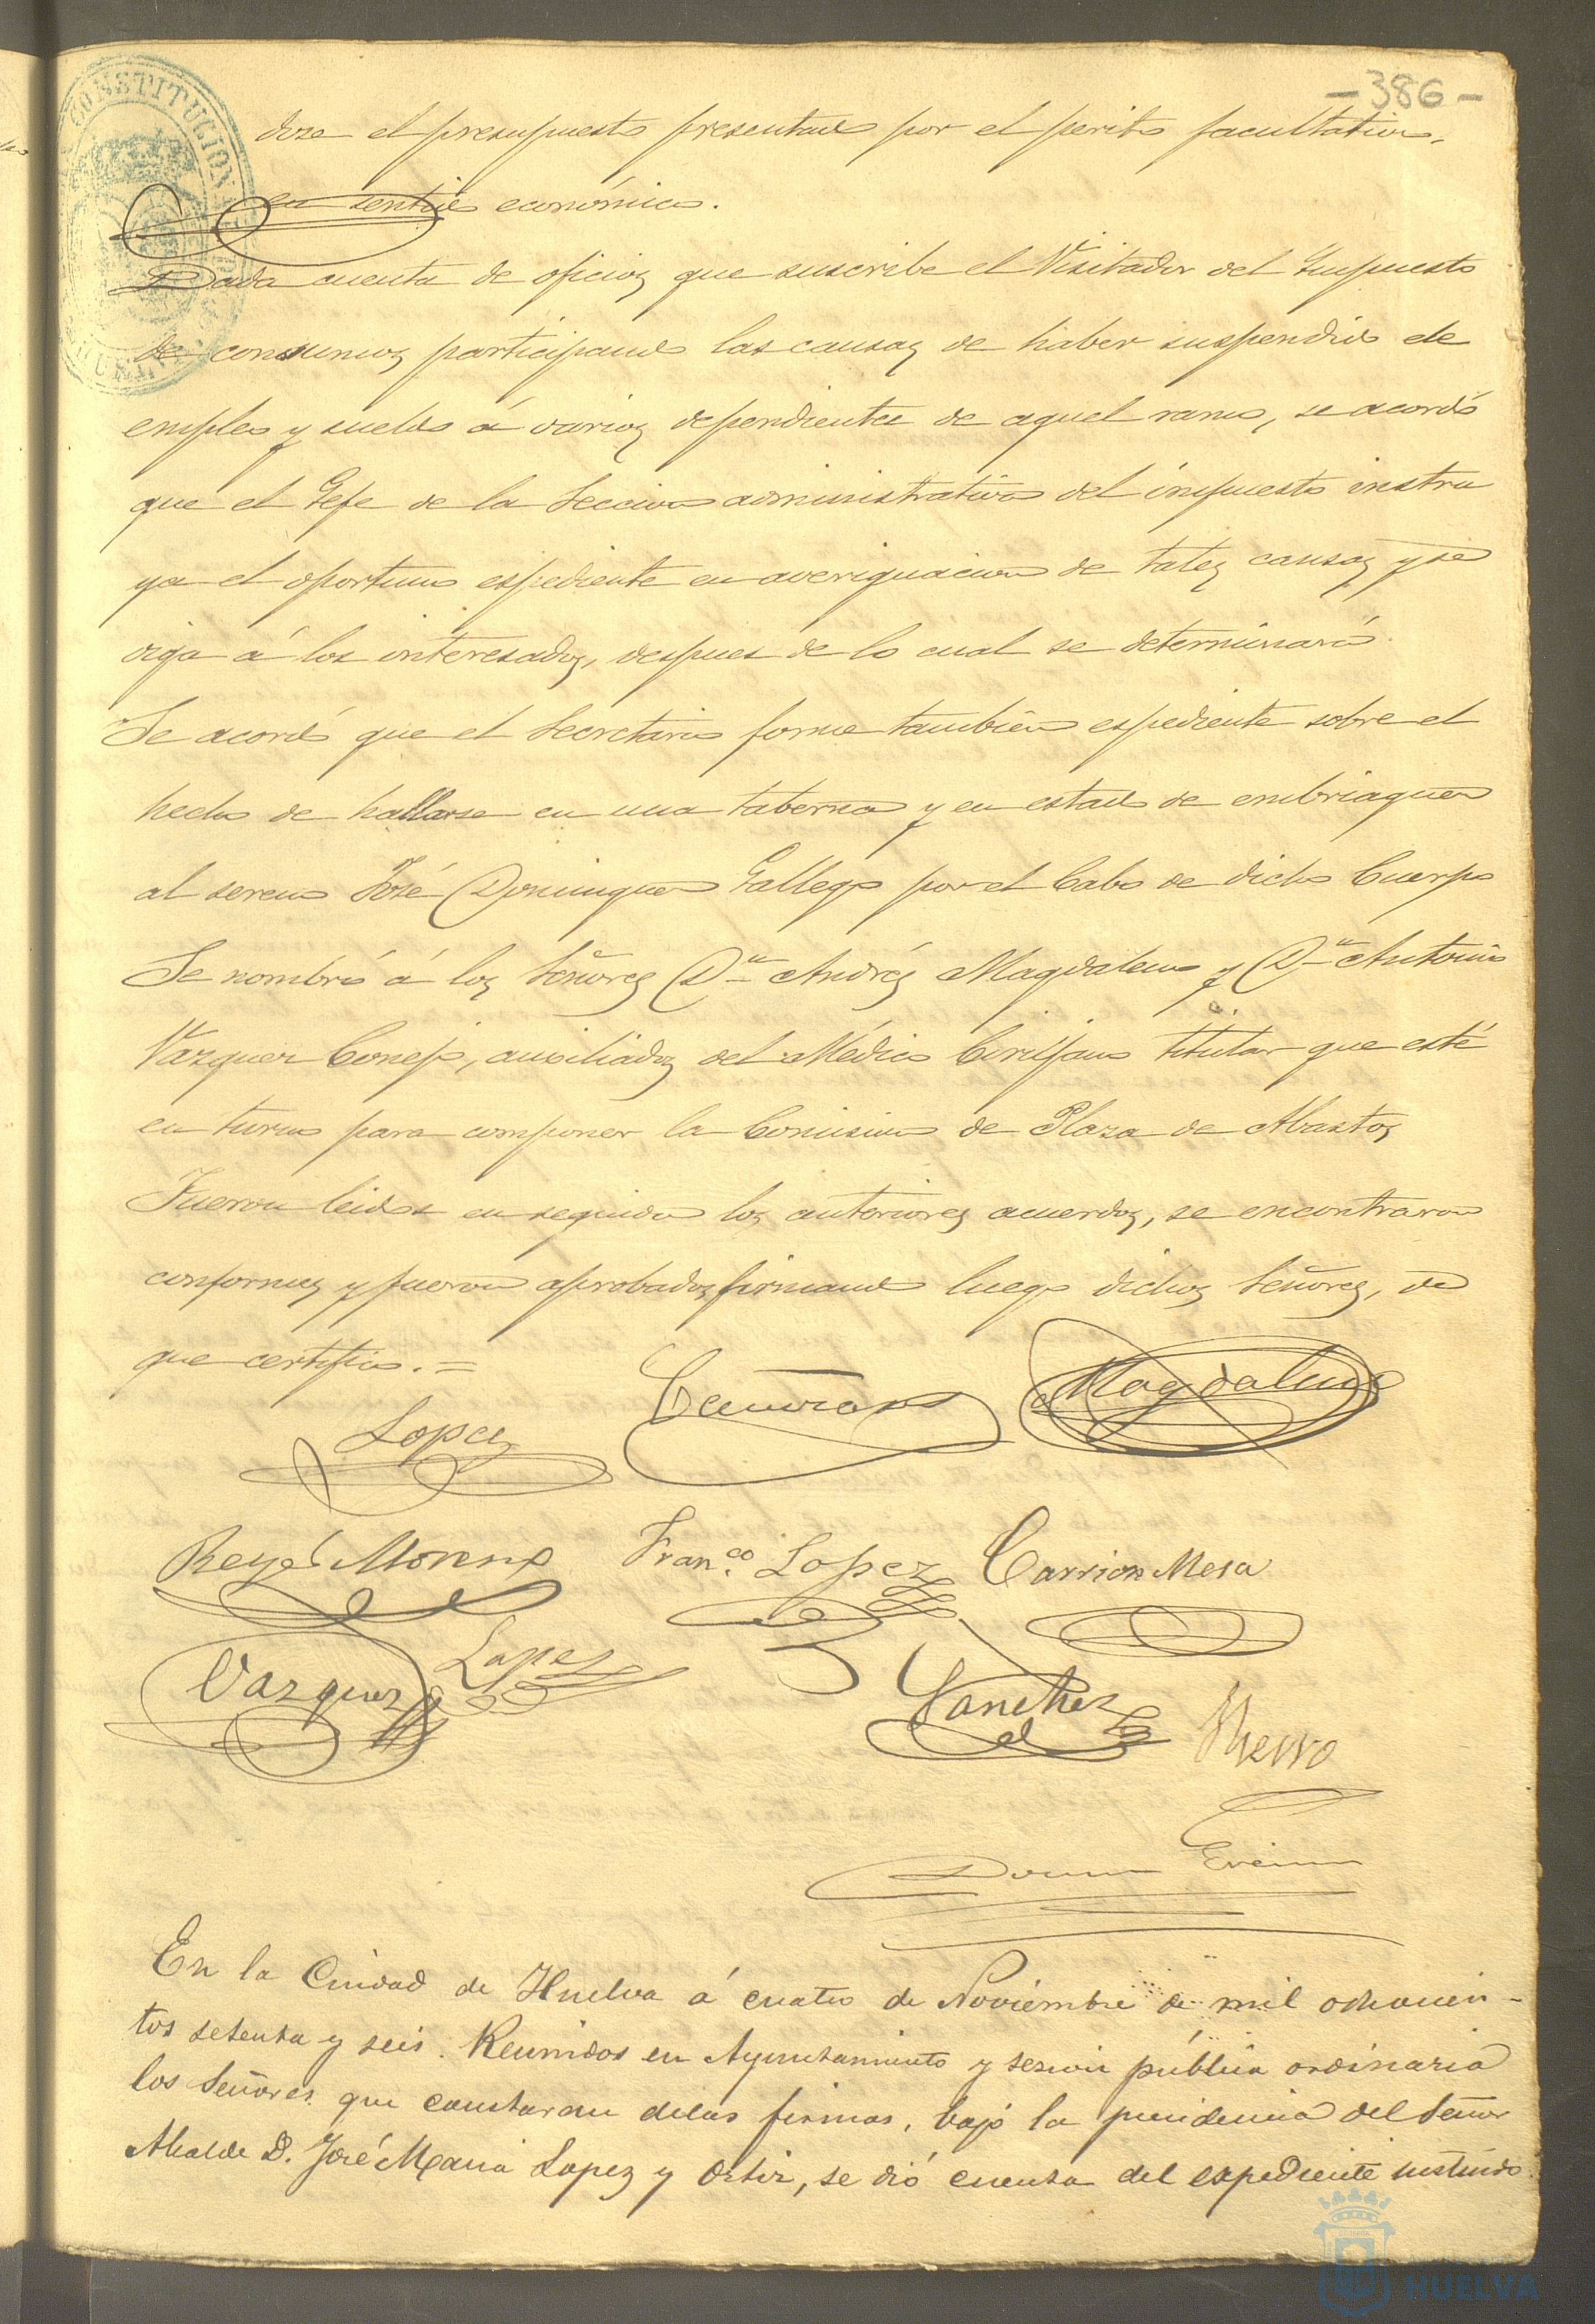 -386-
CONSTITUCION
dose el presupuesto presentado por el perito facultativo,
en sentido económico.
Dada cuenta de oficios que suscribe el Visitador del Impuesto
de consumos participando las causas de haber suspendido de
empleo y sueldo á varios dependientes de aquel ramo, se acordó
que el Gefe de la Seccion administrativa del impuesto instru
ya el oportuno espediente en averiguacion de tales causas y se
oiga á los interesados, despues de lo cual se determinará.
Se acordó que el Secretario forme tambien espediente sobre el
hecho de hallarse en una taberna y en estado de embriaguez
al sereno José Dominguez Gallego por el Cabo de dicho Cuerpo
Se nombró á los Señores Dn Andrés Magdaleno y Dn Antonio
Vazquez Conejo, ausiliados del Médico Cirujano titular que esté
en turno para componer la Comision de Plaza de Abastos
Fueron leidos en seguida los anteriores acuerdos, se encontraron
conformes y fueron aprobados firmando luego dichos Señores, de
que certifico.=
Lopez
Magdaleno
Reyes Moreno Franco Lopez Carrion Mesa
Vazquez Lopez Sanchez
En la Ciudad de Huelva á cuatro de Noviembre de mil ochocien-
tos setenta y seis. Reunidos en Ayuntamiento y sesion pública ordinaria
los Señores que constarán delas firmas, bajo la presidencia del Señor
Alcalde D. José Maria Lopez y Ortiz, se dió cuenta del expediente instruido
HUELVA